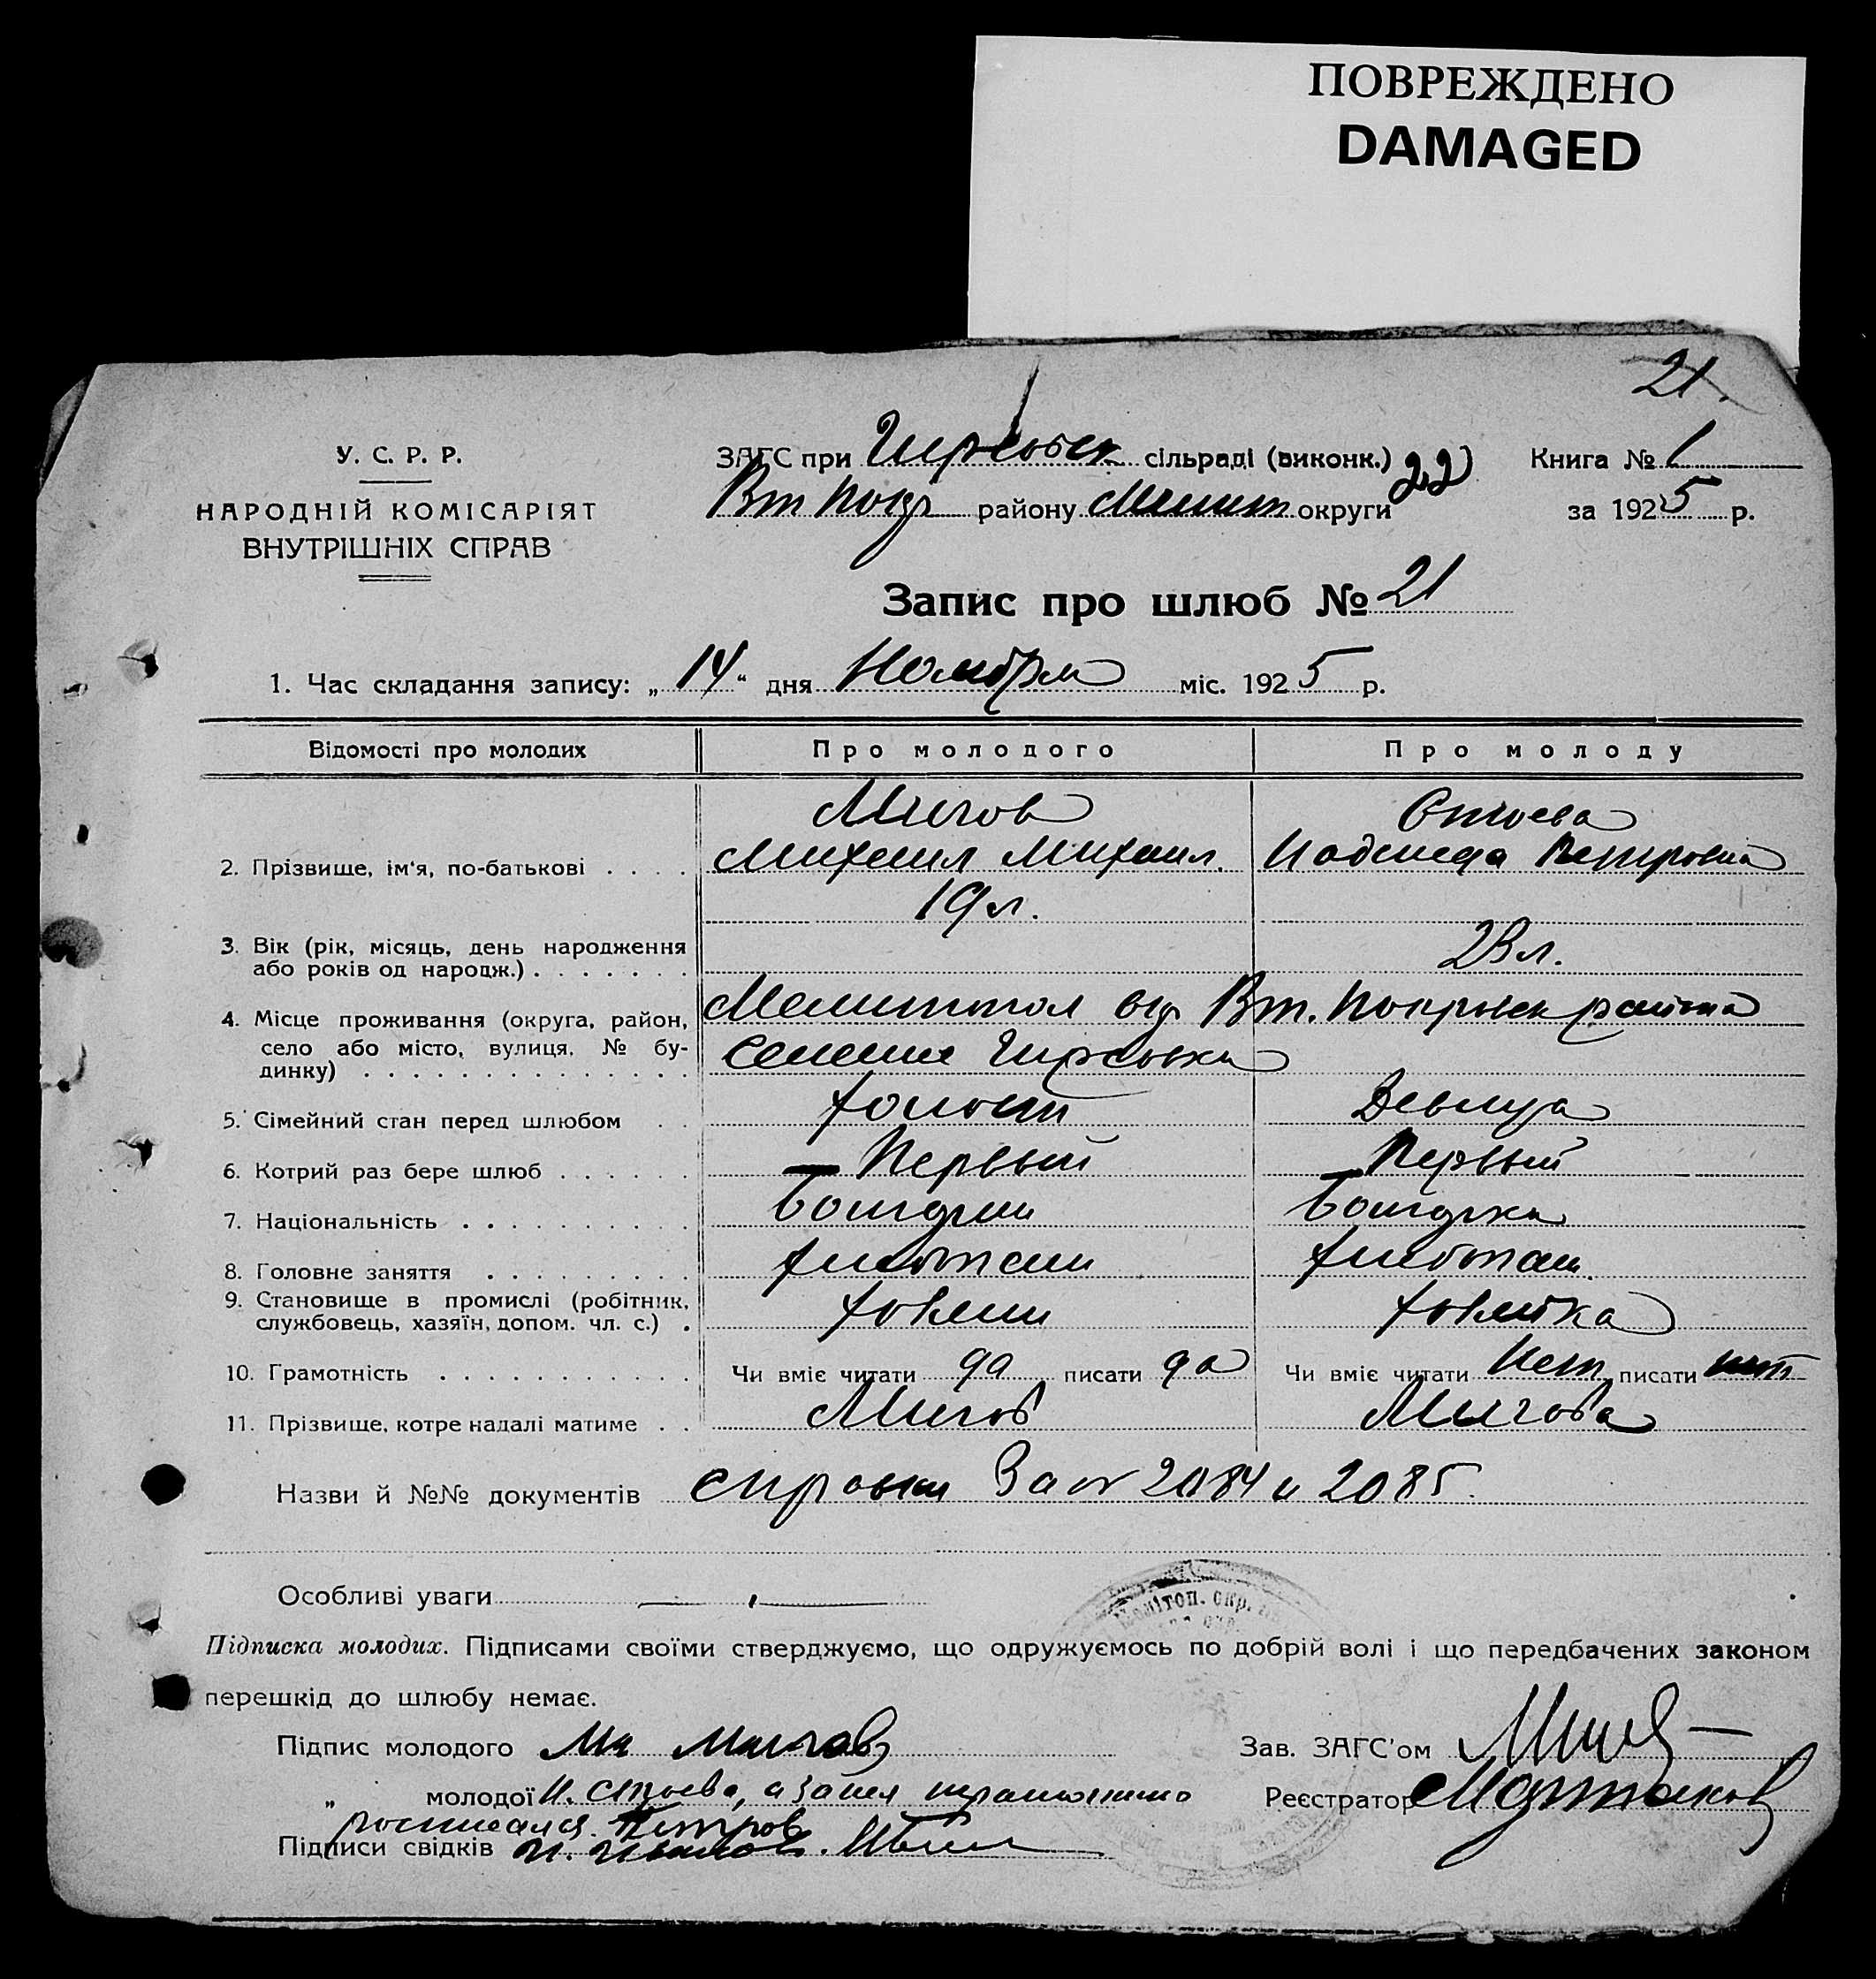 ПОВРЕЖДЕНО
DAMAGED
21.
У. С. Р. Р.
НАРОДНІЙ КОМІСАРІЯТ
ВНУТРІШНІХ СПРАВ
ЗАГС при Гирсовск сільраді (виконк.) 22)
Вт Покр району Мелит округи
Книга № 1
за 1925 р.
Запис про шлюб № 21
1. Час складання запису: „14“ дня Ноября міс. 1925 р.
Відомості про молодих Про молодого Про молоду
2. Прізвище, ім'я, по-батькові . . . . Мигов Михаил Михаил. Надежда Петровна
19 л.
3. Вік (рік, місяць, день народження
або років од народж.) . . . . . . . 23 л.
4. Місце проживання (округа, район,
село або місто, вулиця, № бу-
динку) . . . . . . . . . . . . . .
Мелитопол окр Вт. Покровск района
селение Гирсовка
5. Сімейний стан перед шлюбом . . холост Девица
6. Котрий раз бере шлюб . . . . . . Первый Первый
7. Національність . . . . . . . . . . Болгарин Болгарка
8. Головне заняття . . . . . . . . . хлебопаш хлебопаш.
9. Становище в промислі (робітник,
службовець, хазяїн, допом. чл. с.) . хозяин хозяйка
10. Грамотність . . . . . . . . . . . Чи вміє читати да писати да Чи вміє читати Нет писати нет
11. Прізвище, котре надалі матиме . . Мигов Мигова
Назви й №№ документів справки За № 2084 и 2085.
Особливі уваги
Мелітоп. окр.
Підписка молодих. Підписами своїми стверджуємо, що одружуємось по добрій волі і що передбачених законом
перешкід до шлюбу немає.
Підпис молодого Ми Мигов
Зав. ЗАГС'ом
„ молодої Н. а за нея неграмотную
росписался Петров
Реєстратор
Підписи свідків И. Иванов.